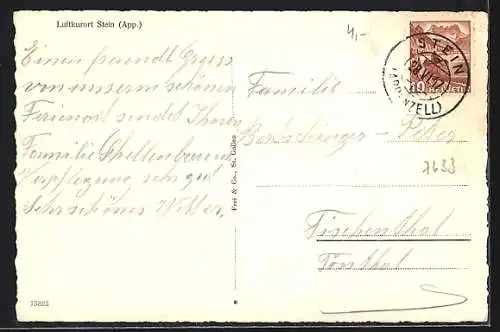 Luftkurort Stein (App.)
4,-
STEIN
(APPENZELL)
HELVETIA
Einen freundl. Gruss
von unserm schönen
Ferienort sendet Ihnen
Familie Schellenbaum
Verpflegung sehr gut
Sehr schönes Wetter.
Frei & Co., St. Gallen
Familie
Peter
7633
Fischenthal
Tössthal
15885